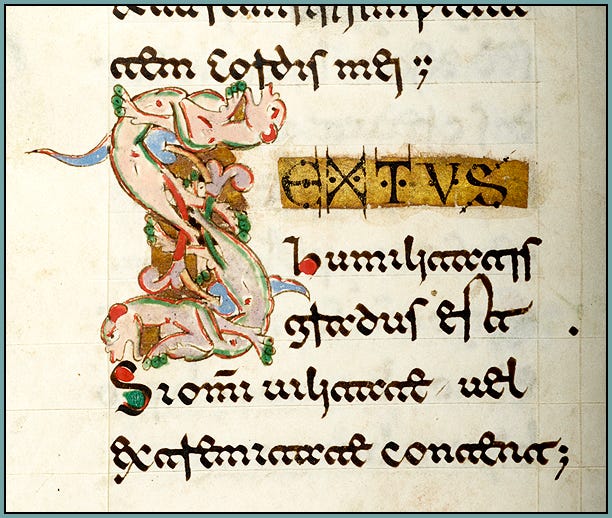 impieta
tem cordis mei ;
SEXTVS
humilitatis
gradus est .
Si om̄i uilitate uel
extremitate content;